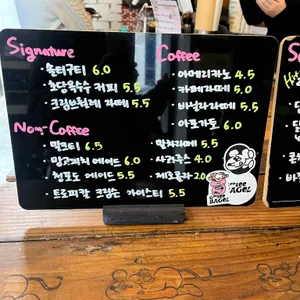 Signature
· 솔티구티 6.0
· 초당옥수수 커피 5.5
· 크림브륄레 라떼 5.5
Coffee
· 아메리카노 4.5
· 카페라떼 5.0
· 바닐라라떼 5.5
· 아포가토 6.0
Non-Coffee
· 밀크티 6.5
· 망고피치 에이드 6.0
· 청포도 에이드 5.5
· 트로피칼 크림슨 아이스티 5.5
· 말차라떼 5.5
· 사과주스 4.0
· 제로콜라 2.0
BAGEL
BAGEL